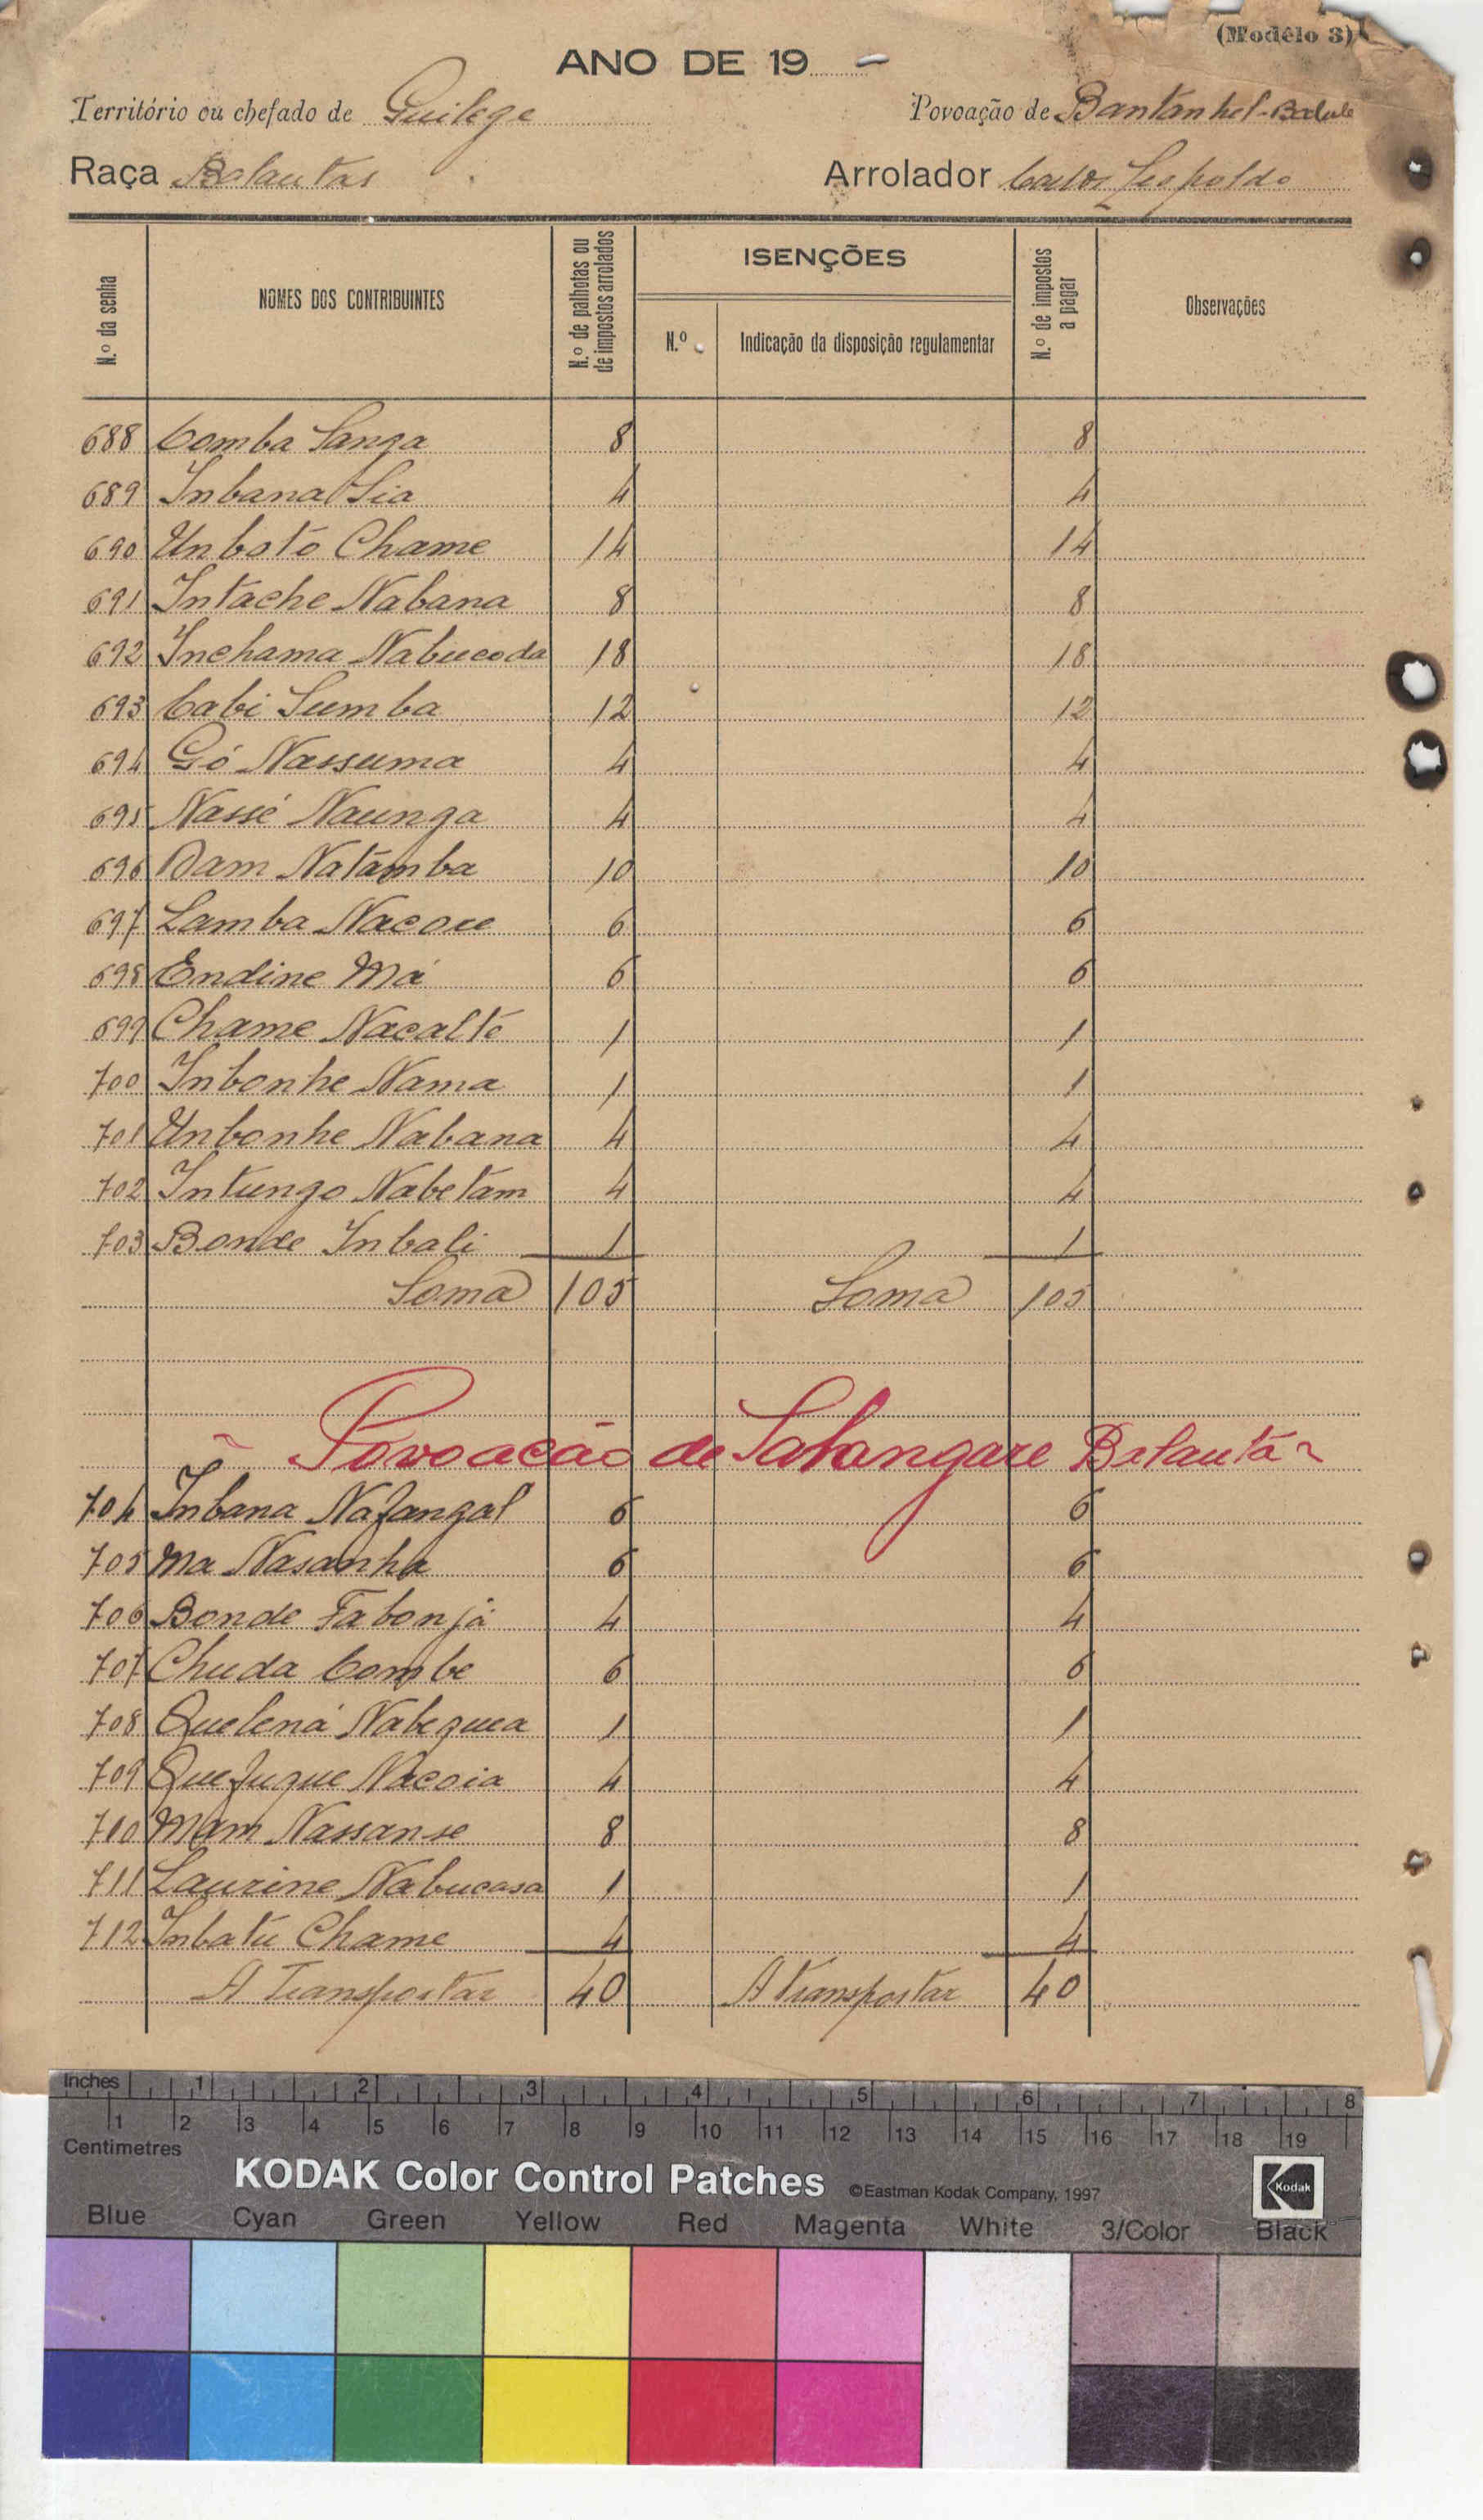 (Modêlo 3)
ANO DE 19 -
Território ou chefado de Guilege Povoação de Bantanhel-Balale
Raça Balantas Arrolador Carlos Leopoldo
N.º da senha NOMES DOS CONTRIBUINTES N.º de palhotas ou de impostos arrolados ISENÇÕES N.º de impostos a pagar Observações
N.º Indicação da disposição regulamentar
688 Comba Sanga 8 8
689 Inbana Sia 4 4
690 Unbotó Chame 14 14
691 Intache Nabana 8 8
692 Inchama Nabucoda 18 18
693 Cabi Sumba 12 12
694 Gó Nassuma 4 4
695 Nassé Naunga 4 4
696 Dam Natamba 10 10
697 Lamba Nacou 6 6
698 Endine Má 6 6
699 Chame Nacalté 1 1
700 Inbonhe Nama 1 1
701 Unbonhe Nabana 4 4
702 Intungo Nabetam 4 4
703 Bonde Inbali 1 1
Soma 105 Soma 105
Povoação de Salangare Balanta
704 Inbana Nafangal 6 6
705 Ma Nasanha 6 6
706 Bonde Fabonjá 4 4
707 Chuda Combe 6 6
708 Quelená Nabequea 1 1
709 Quefuque Nacoia 4 4
710 Mam Nassanse 8 8
711 Laurine Nabucasa 1 1
712 Inbatú Chame 4 4
A Transportar 40 A transportar 40
Inches 1 2 3 4 5 6 7 8
1 2 3 4 5 6 7 8 9 10 11 12 13 14 15 16 17 18 19
Centimetres
KODAK Color Control Patches ©Eastman Kodak Company, 1997 Kodak
Blue Cyan Green Yellow Red Magenta White 3/Color Black